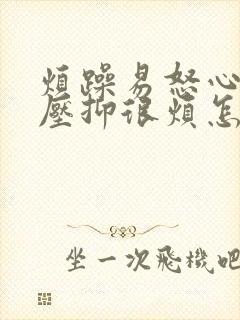 煩躁易怒心
壓抑很煩怎
坐一次飛機吧